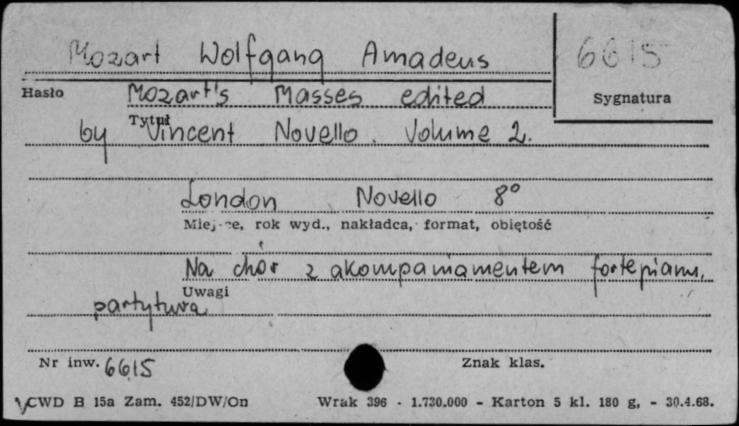 Mozart Wolfgang Amadeus
6615
Hasło
Mozart's Masses edited
Sygnatura
Tytuł
by Vincent Novello. Volume 2.
London Novello 8°
Miejsce, rok wyd., nakładca, format, objętość
Na chór z akompaniamentem fortepianu,
Uwagi
partytura
Nr inw. 6615
Znak klas.
CWD B 15a Zam. 452/DW/On Wrak 396 - 1.730.000 - Karton 5 kl. 180 g. - 30.4.68.